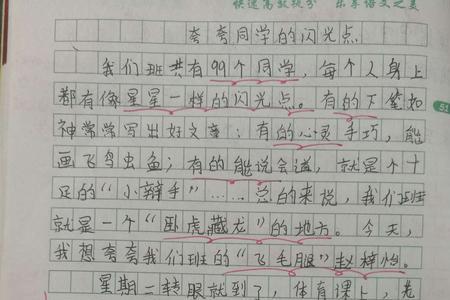 快速高效提分 乐享语文之美
夸夸同学的闪光点
我们班共有99个同学，每个人身上
都有像星星一样的闪光点。有的下笔如
神常常写出好文章；有的心灵手巧，能
画飞鸟虫鱼；有的能说会道，就是个十
足的“小辩手”……总的来说，我们班
就是一个“卧虎藏龙”的地方。今天，
我想夸夸我们班的“飞毛腿”赵梓怡。
星期二转眼就到了，体育课上，老
51